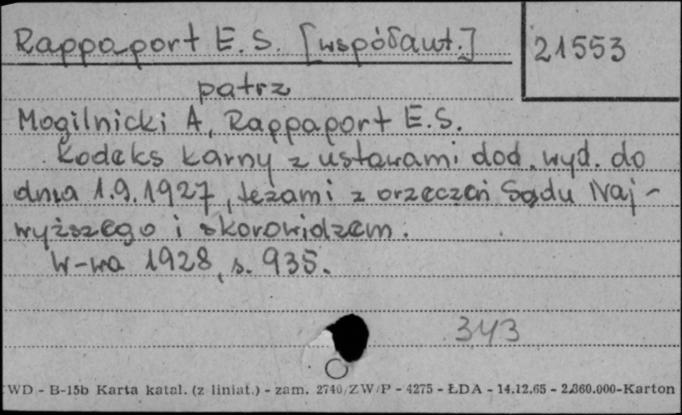 Rappaport E. S. [współaut.]
21553
patrz
Mogilnicki A, Rappaport E.S.
Kodeks karny z ustawami dod. wyd. do
dnia 1.9.1927, tezami z orzeczeń Sądu Naj-
wyższego i skorowidzem.
W-wa 1928, s. 935.
343
WD - B-15b Karta katal. (z liniat.) - zam. 2740/ZW/P - 4275 - ŁDA - 14.12.65 - 2.360.000-Karton